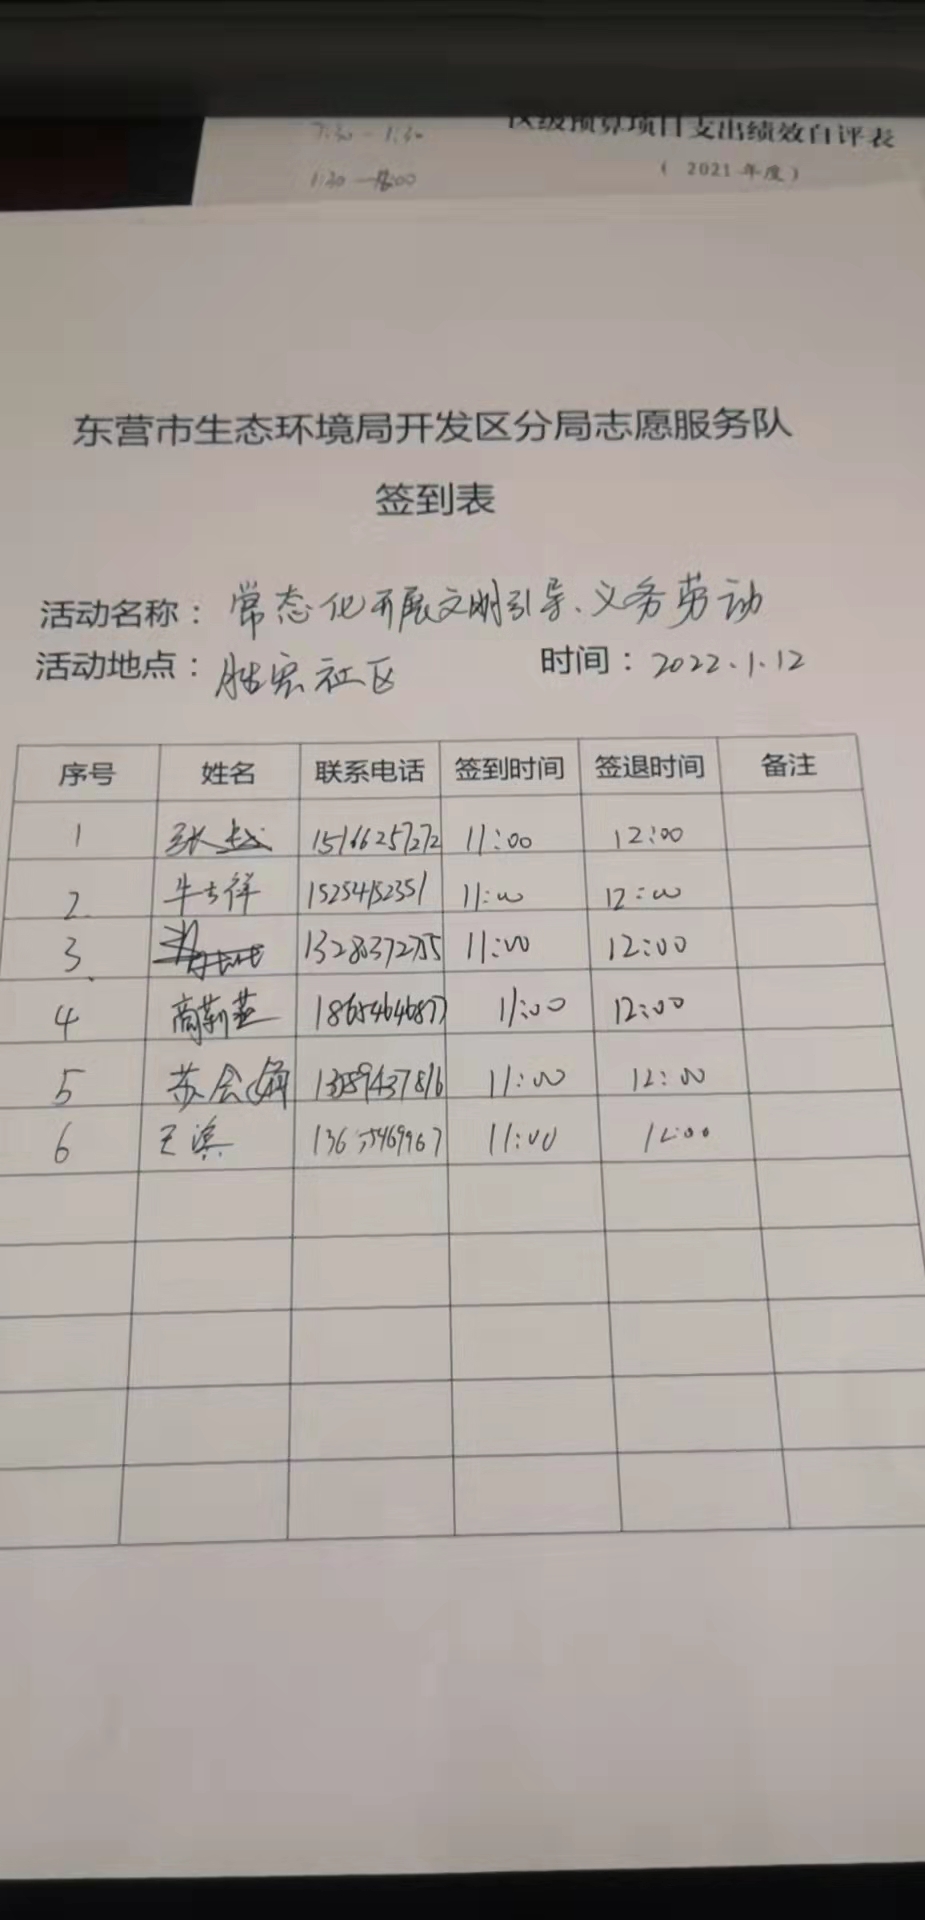 7:30 - 1:30
区级预算项目支出绩效自评表
1:30 — 8:00
( 2021 年度 )
东营市生态环境局开发区分局志愿服务队
签到表
活动名称： 常态化开展文明引导、义务劳动
活动地点： 胜宏社区 时间： 2022.1.12
序号 姓名 联系电话 签到时间 签退时间 备注
1 15166257272 11:00 12:00
2 牛吉祥 15254152351 11:00 12:00
3 11:00 12:00
4 18654646877 11:00 12:00
5 苏会娟 11:00 12:00
6 王滨 11:00 12:00